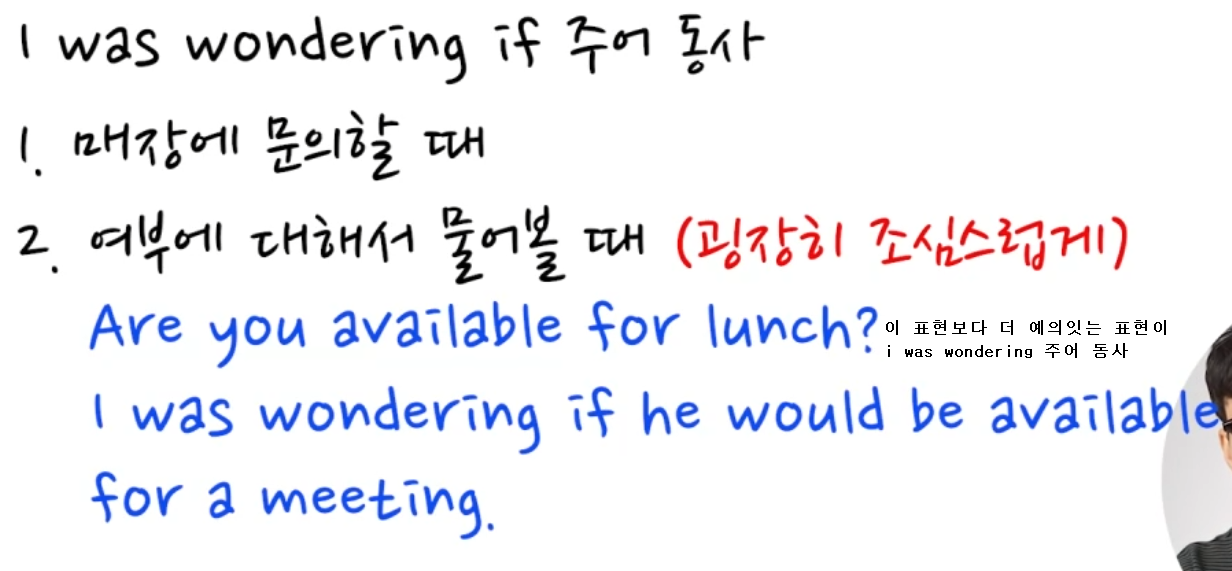 I was wondering if 주어 동사
1. 매장에 문의할 때
2. 여부에 대해서 물어볼 때 (굉장히 조심스럽게)
Are you available for lunch?
이 표현보다 더 예의잇는 표현이
i was wondering 주어 동사
I was wondering if he would be available
for a meeting.